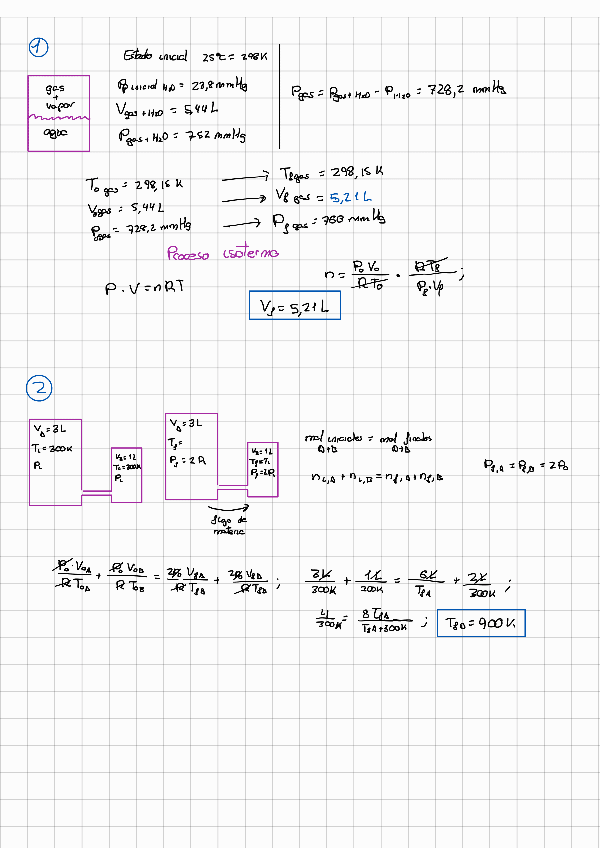 1
Estado inicial 25ºC = 298K
gas
+
vapor
agua
Pp inicial H2O = 23,8 mmHg
Vgas+H2O = 5,44 L
Pgas+H2O = 752 mmHg
Pgas = Pgas+H2O - PH2O = 728,2 mmHg
T0 gas = 298,15 K → Tf gas = 298,15 K
V0gas = 5,44L → Vf gas = 5,21 L
P0gas = 728,2 mmHg → Pf gas = 760 mmHg
Proceso isotermo
P · V = nRT
n = P0 V0 / R T0 · R Tf / Pf · Vf ;
Vf = 5,21 L
2
VA = 3L
Ti = 300K
Pi
VB = 1L
Ti = 300K
Pi
VA = 3L
Tf =
Pf = 2 Pi
VB = 1L
Tf = Ti
Pf = 2Pi
flujo de
materia
mol iniciales = mol finales
A+B A+B
ni,A + ni,B = nf,A + nf,B
Pf,A = Pf,B = 2P0
P0 · V0A / R T0A + P0 V0B / R T0B = 2P0 VfA / R TfA + 2P0 VfB / R TfB ;
3L / 300K + 1L / 300K = 6L / TfA + 2L / 300K ;
4 / 300K = 8 TfA / TfA + 300K ;
TfA = 900 K